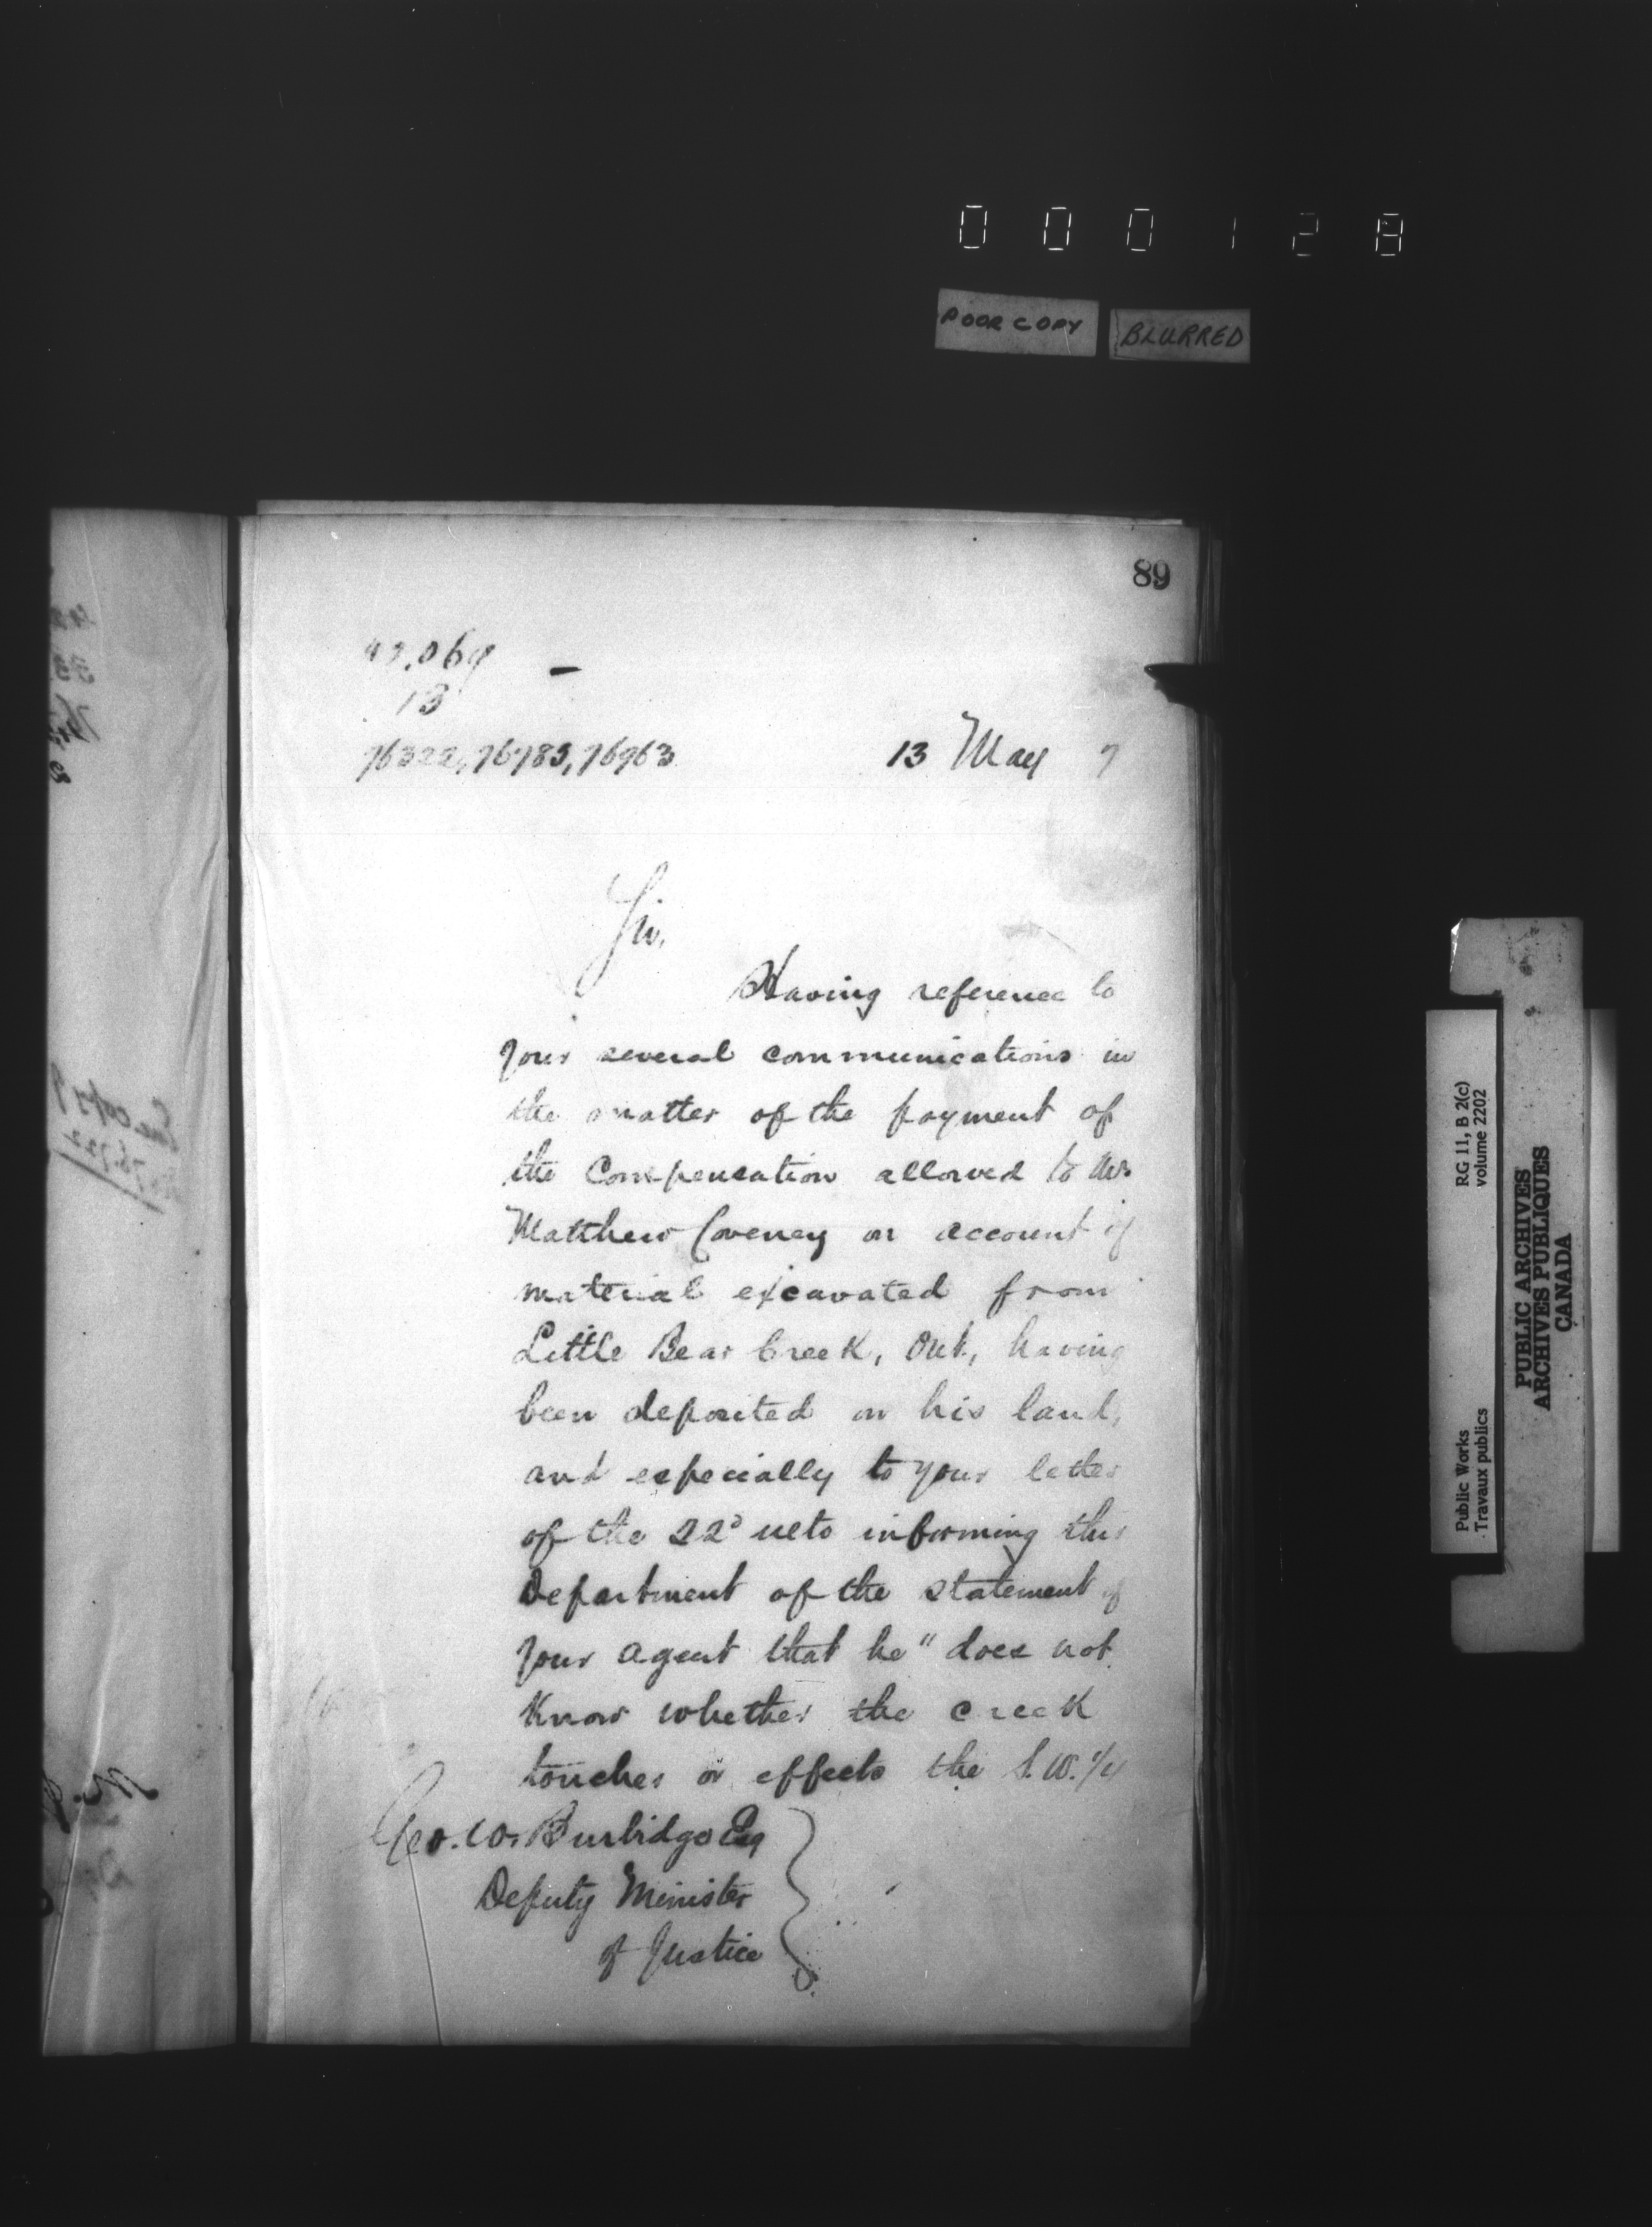 000128
POOR COPY
BLURRED
89
13
76322, 76785, 76963
13 May 7
Sir,
Having reference to
your several communications in
the matter of the payment of
the Compensation allowed to Mr
Matthew Coveney on account of
material excavated from
Little Bear Creek, Ont, having
been deposited on his land,
and especially to your letter
of the 22d ulto informing this
Department of the statement of
your agent that he "does not
know whether the creek
touches or effects the S.W. 1/4
Geo. W. Burbidge Esq
Deputy Minister
of Justice
Public Works
Travaux publics
RG 11, B 2(c)
volume 2202
PUBLIC ARCHIVES
ARCHIVES PUBLIQUES
CANADA